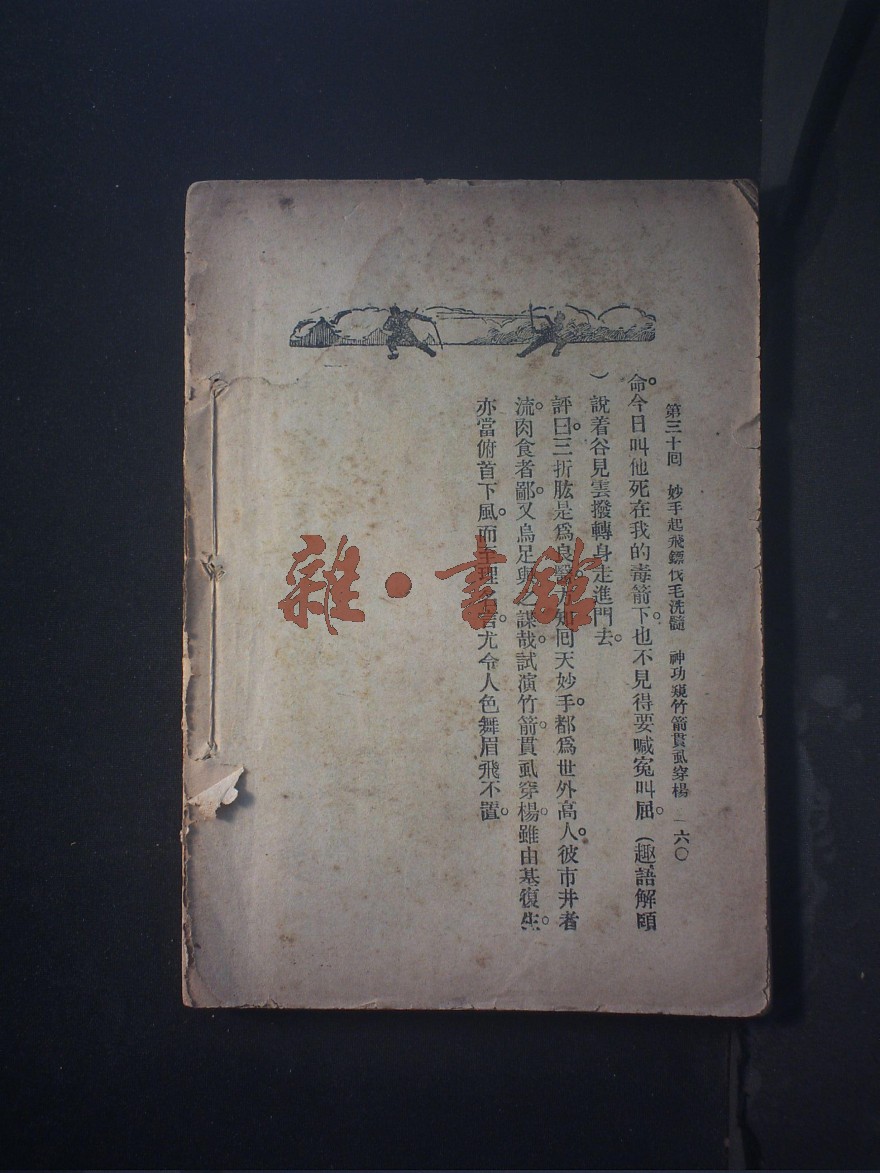 第三十回　妙手起飛鏢伐毛洗髓　神功窺竹箭貫虱穿楊　一六〇
命。今日叫他死在我的毒箭下。也不見得要喊寃叫屈。（趣語解頤
）說着谷見雲撥轉身走進門去。
評曰。三折肱是爲良醫。方知回天妙手。都爲世外高人。彼市井者
流。肉食者鄙。又烏足與之謀哉。試演竹箭。貫虱穿楊。雖由基復生。
亦當俯首下風。而至理名言。尤令人色舞眉飛不置。
雜・書館